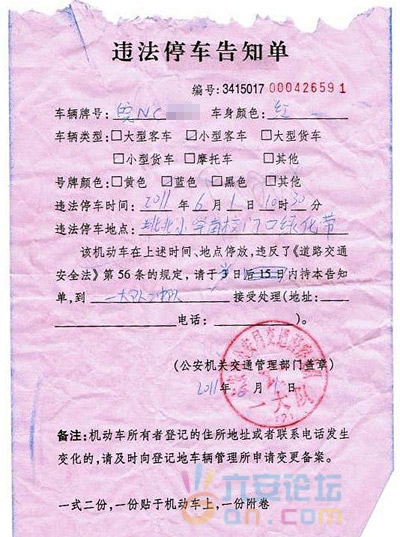 违法停车告知单
编号:3415017 000426591
车辆牌号: 皖NC 车身颜色: 红
车辆类型:□大型客车 ☑小型客车 □大型货车
□小型货车 □摩托车 □其他
号牌颜色:□黄色 ☑蓝色 □黑色 □其他
违法停车时间: 2011 年 6 月 1 日 10 时 30 分
违法停车地点: 北小学南校门口绿化带
该机动车在上述时间、地点停放,违反了《道路交通
安全法》第 56 条的规定,请于 3 日后 15 日内持本告知
单,到 一大队 接受处理(地址:
电话: )。
(公安机关交通管理部门盖章)
2011 年 月 日
一大队
备注:机动车所有者登记的住所地址或者联系电话发生
变化的,请及时向登记地车辆管理所申请变更备案。
一式二份,一份贴于机动车上,一份附卷
六安论坛